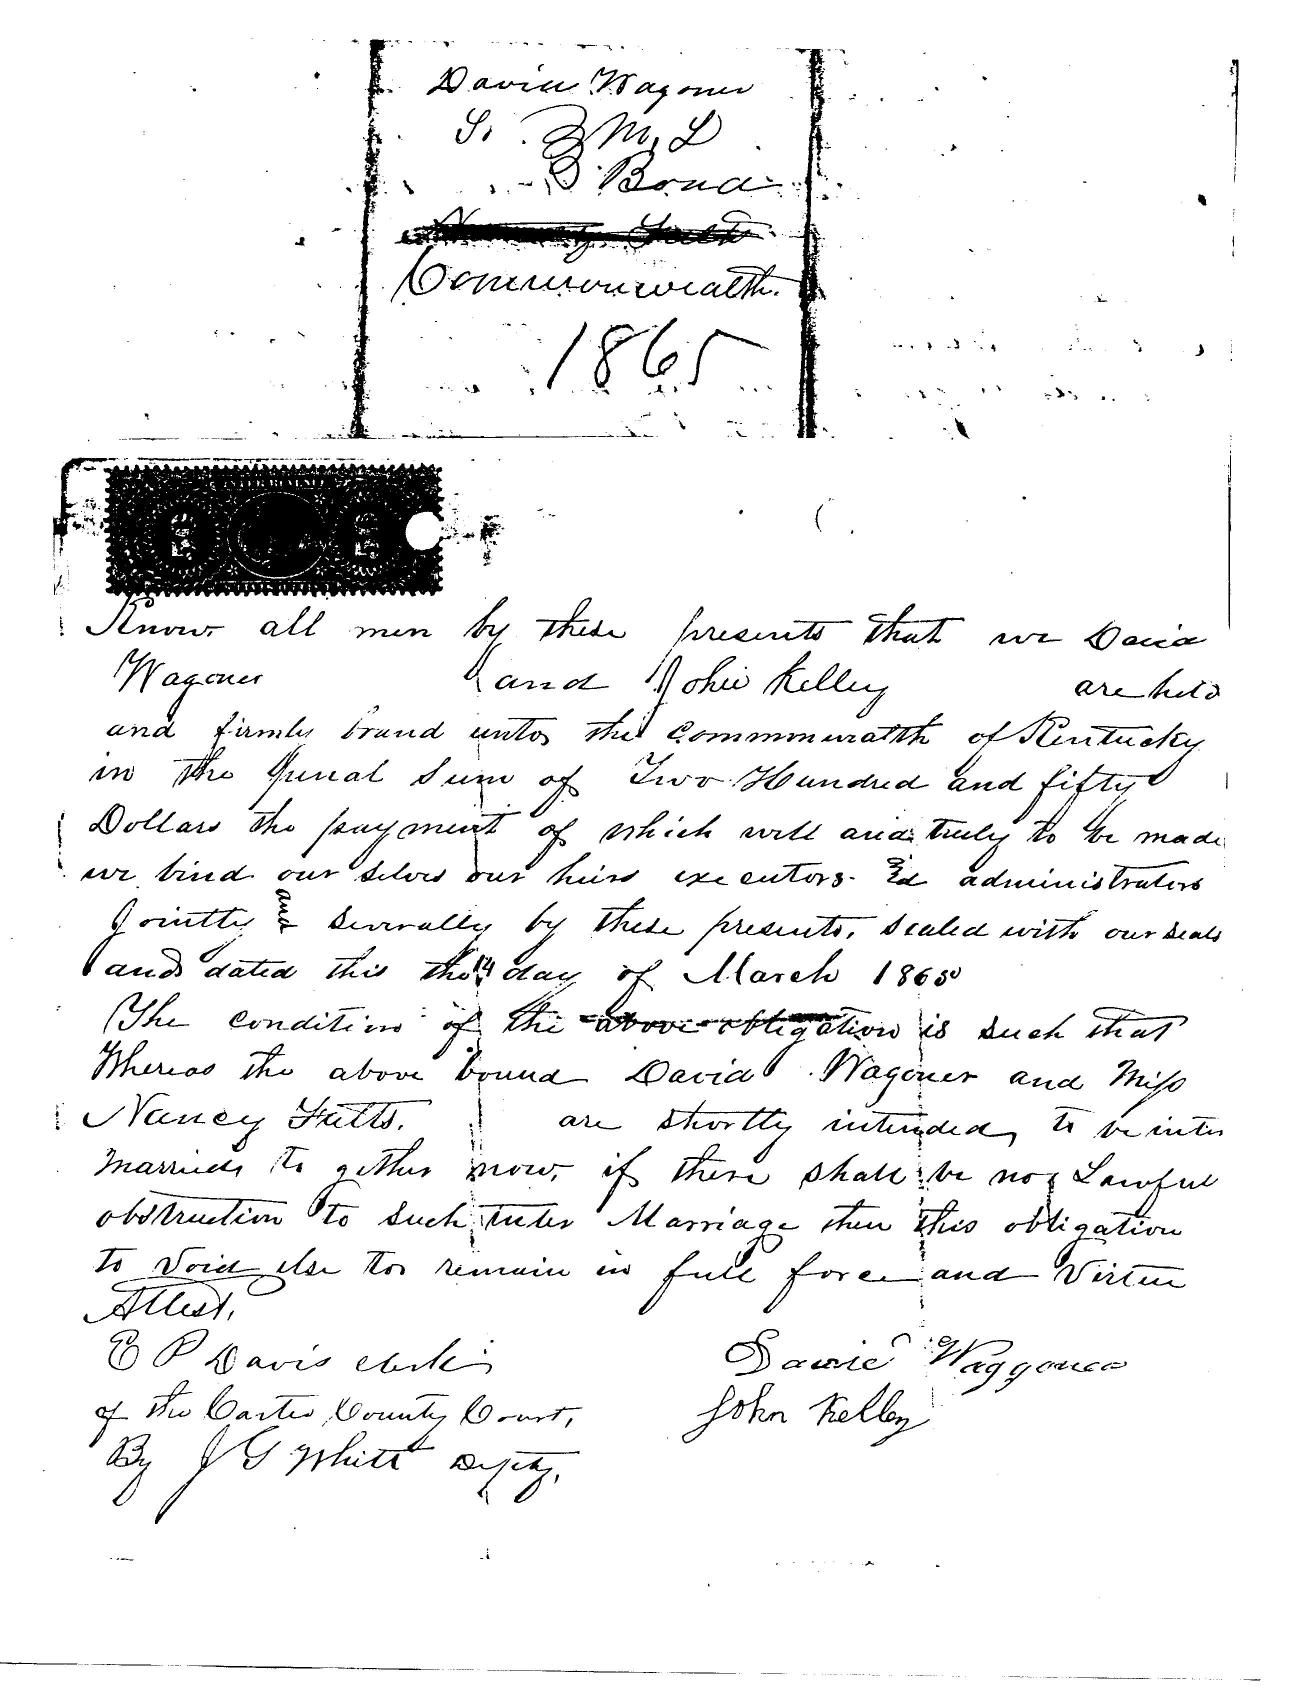 David Wagoner
To } M, L
} Bond
Commonwealth.
1865
Know all men by these presents that we David
Wagoner and John Kelley are held
and firmly bound unto the Commonwealth of Kentucky
in the penal Sum of Two Hundred and fifty
Dollars the payment of which well and truly to be made
we bind our selves our heirs executors and administrators
Jointly and Severally by these presents, sealed with our seals
and dated this the 14 day of March 1865
The condition of the above obligation is such that
Whereas the above bound David Wagoner and Miss
Nancy Fults. are shortly intended, to be inter
married to gether now, if there shall be no Lawful
obstruction to such inter Marriage then this obligation
to Void else to remain in full force and Virtue
Attest,
E P Davis clerk
of the Carter County Court,
By J G Whitt Depty,
David Waggoner
John Kelley